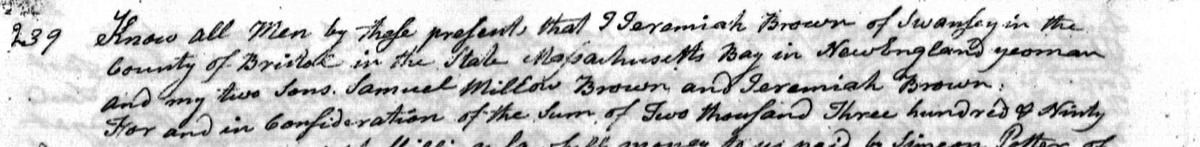 239 Know all Men by these presents that I Jeremiah Brown of Swansey in the
County of Bristol in the State Massachusetts Bay in New England yeoman
and my two Sons. Samuel Millow Brown and Jeremiah Brown.
For and in Consideration of the Sum of Two thousand Three hundred & Ninty
money to us paid by Simeon Potter of